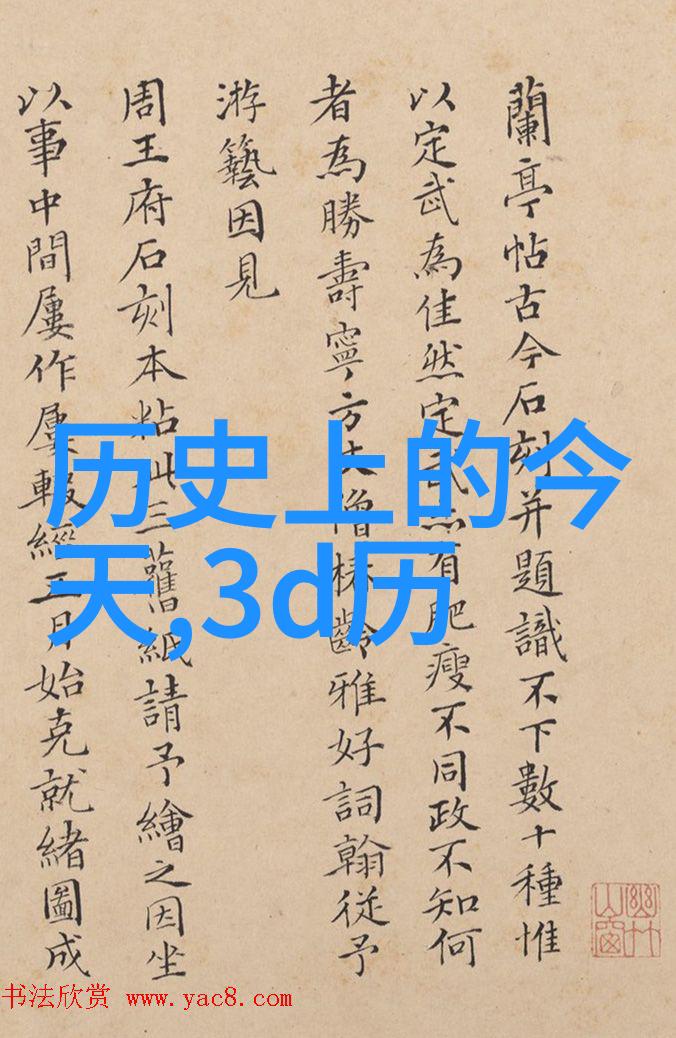 蘭亭帖古今石刻并題識不下數十種惟
以定武為佳然定武亦有肥瘦不同政不知何
者為勝壽寧方丈僧梯齡雅好詞翰從予
游藝因見
周王府石刻本粘此三舊紙請予繪之因坐
以事中間屢作屢輟經五月始克就緒圖成
历史上的今
天,3d历
书法欣赏 www.yac8.com